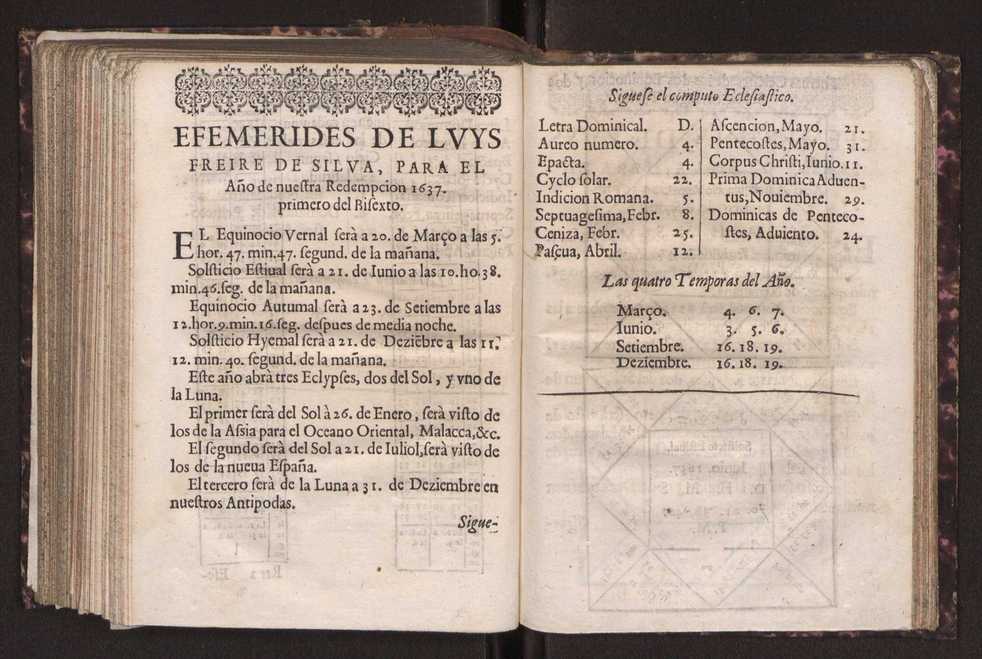 EFEMERIDES DE LVYS
FREIRE DE SILVA, PARA EL
Año de nueſtra Redempcion 1637.
primero del Biſexto.
EL Equinocio Vernal ſerà a 20. de Março a las 5.
hor. 47. min. 47. ſegund. de la mañana.
Solſticio Eſtiual ſerà a 21. de Iunio a las 10. ho. 38.
min. 46. ſeg. de la mañana.
Equinocio Autumal ſerà a 23. de Setiembre a las
12. hor. 9. min. 16. ſeg. deſpues de media noche.
Solſticio Hyemal ſerà a 21. de Deziẽbre a las 11.
12. min. 40. ſegund. de la mañana.
Eſte año abrà tres Eclypſes, dos del Sol, y vno de
la Luna.
El primer ſerà del Sol à 26. de Enero, ſerà viſto de
los de la Aſsia para el Oceano Oriental, Malacca, &c.
El ſegundo ſerà del Sol a 21. de Iuliol, ſerà viſto de
los de la nueua Eſpaña.
El tercero ſerà de la Luna a 31. de Deziembre en
nueſtros Antipodas.
Sigue-
Sigueſe el computo Ecleſiaſtico.
Letra Dominical. D.
Aureo numero. 4.
Epacta. 4.
Cyclo ſolar. 22.
Indicion Romana. 5.
Septuageſima, Febr. 8.
Ceniza, Febr. 25.
Paſcua, Abril. 12.
Aſcencion, Mayo. 21.
Pentecoſtes, Mayo. 31.
Corpus Chriſti, Iunio. 11.
Prima Dominica Aduen-
tus, Nouiembre. 29.
Dominicas de Penteco-
ſtes, Aduiento. 24.
Las quatro Temporas del Año.
Março. 4. 6. 7.
Iunio. 3. 5. 6.
Setiembre. 16. 18. 19.
Deziembre. 16. 18. 19.